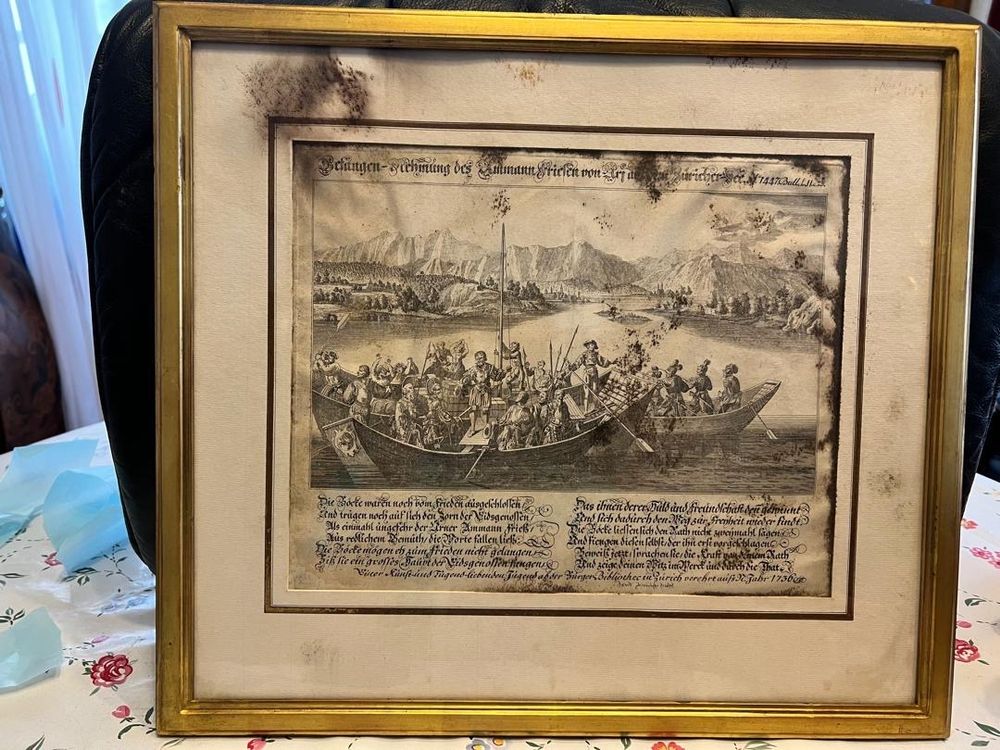 Gefangen-Nehmung des Ammann Friesen von Uri auf dem Züricher See. A. 1447. Bull. L. II.
Die Böcke waren noch vom Frieden ausgeschlossen
Und trügen noch auf sich den Zorn der Eidsgenossen
Als einmahl ungefehr der Urner Ammann Frieß
Aus redlichem Gemüth, die Worte fallen ließ:
Die Böcke mögen eh zum Frieden nicht gelangen
Biß sie ein großes Haubt der Eidsgenossen fiengen
Das ihnen derer Huld und freundschaft den gewinnt
Und sich dadurch den Weg zur freyheit wieder findt
Die Böcke liessen sich den Rath nicht zweymahl sagen
Und fiengen diesen selbst der ihn erst vorgeschlagen
Beweiß jetzt, sprachen sie, die Kraft von deinem Rath
Und zeige deinen Witz im Werck und durch die That.
Einer Kunst und Tugend-liebenden Jugend ab der Burger Bibliothec in Zürich verehrt auf's N. Jahr 1736